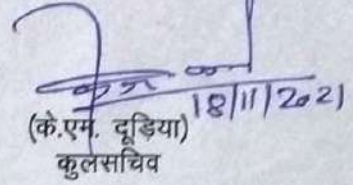 18/11/2021
(के.एम. दूड़िया)
कुलसचिव